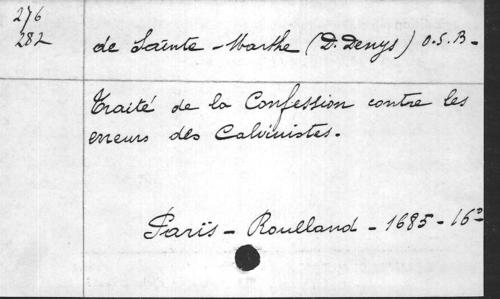 276
282
de Sainte-Marthe (D. Denys) O.S.B-
Traité de la Confession contre les
erreurs des Calvinistes.
Parïs - Roulland - 1685 - 16º